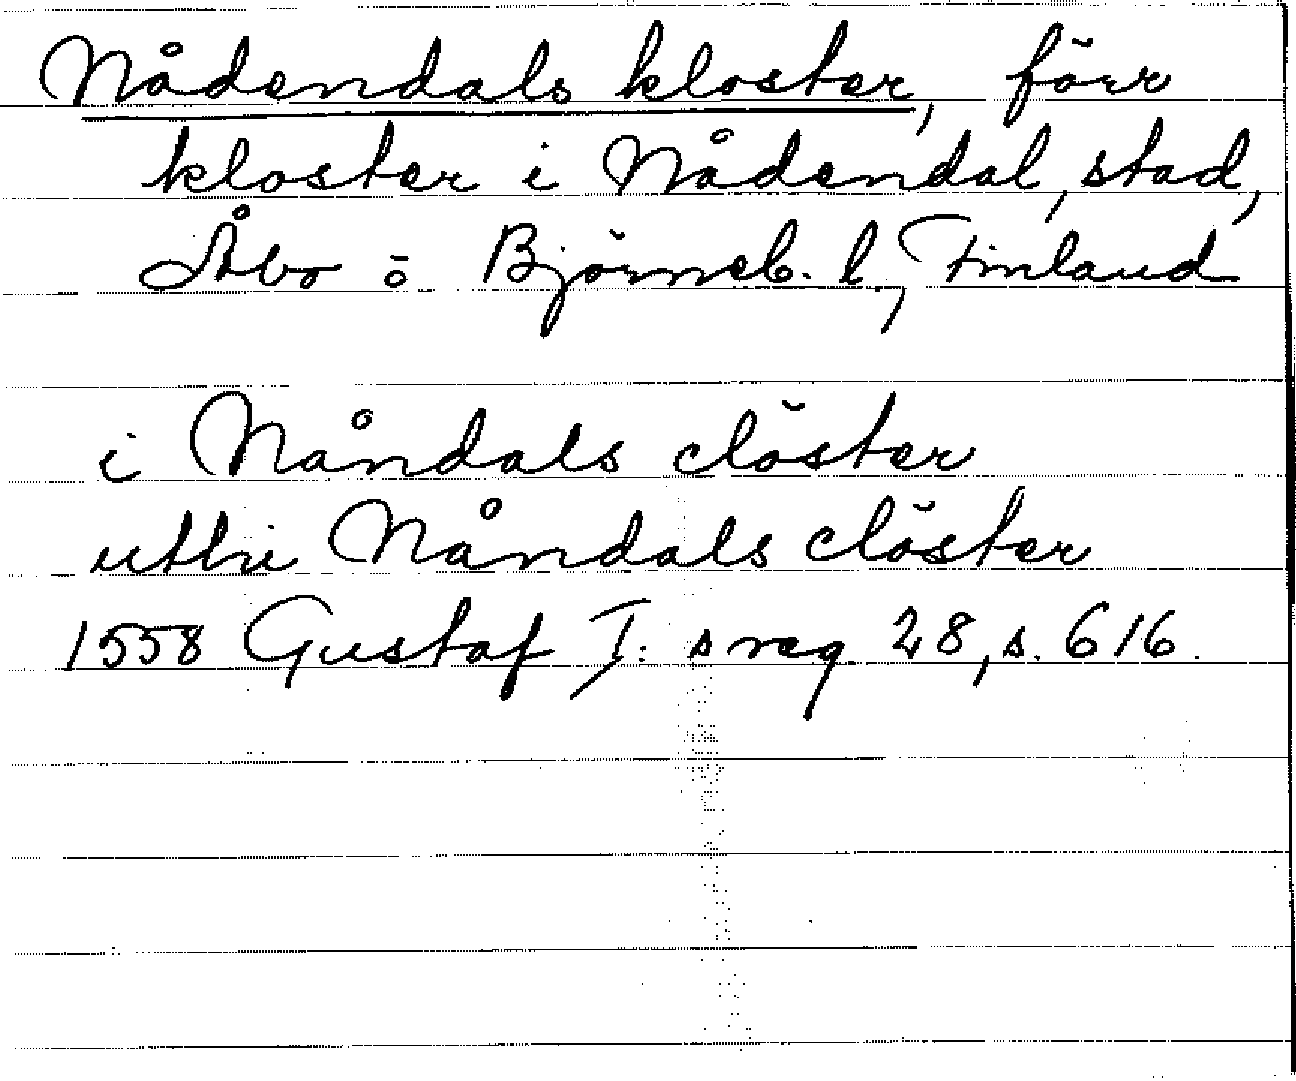 Nådendals kloster, förr
kloster i Nådendal, stad,
Åbo o Björneb. l., Finland
i Nåndals clöster
uthi Nåndals clöster
1558 Gustaf I:s reg 28, s. 616.